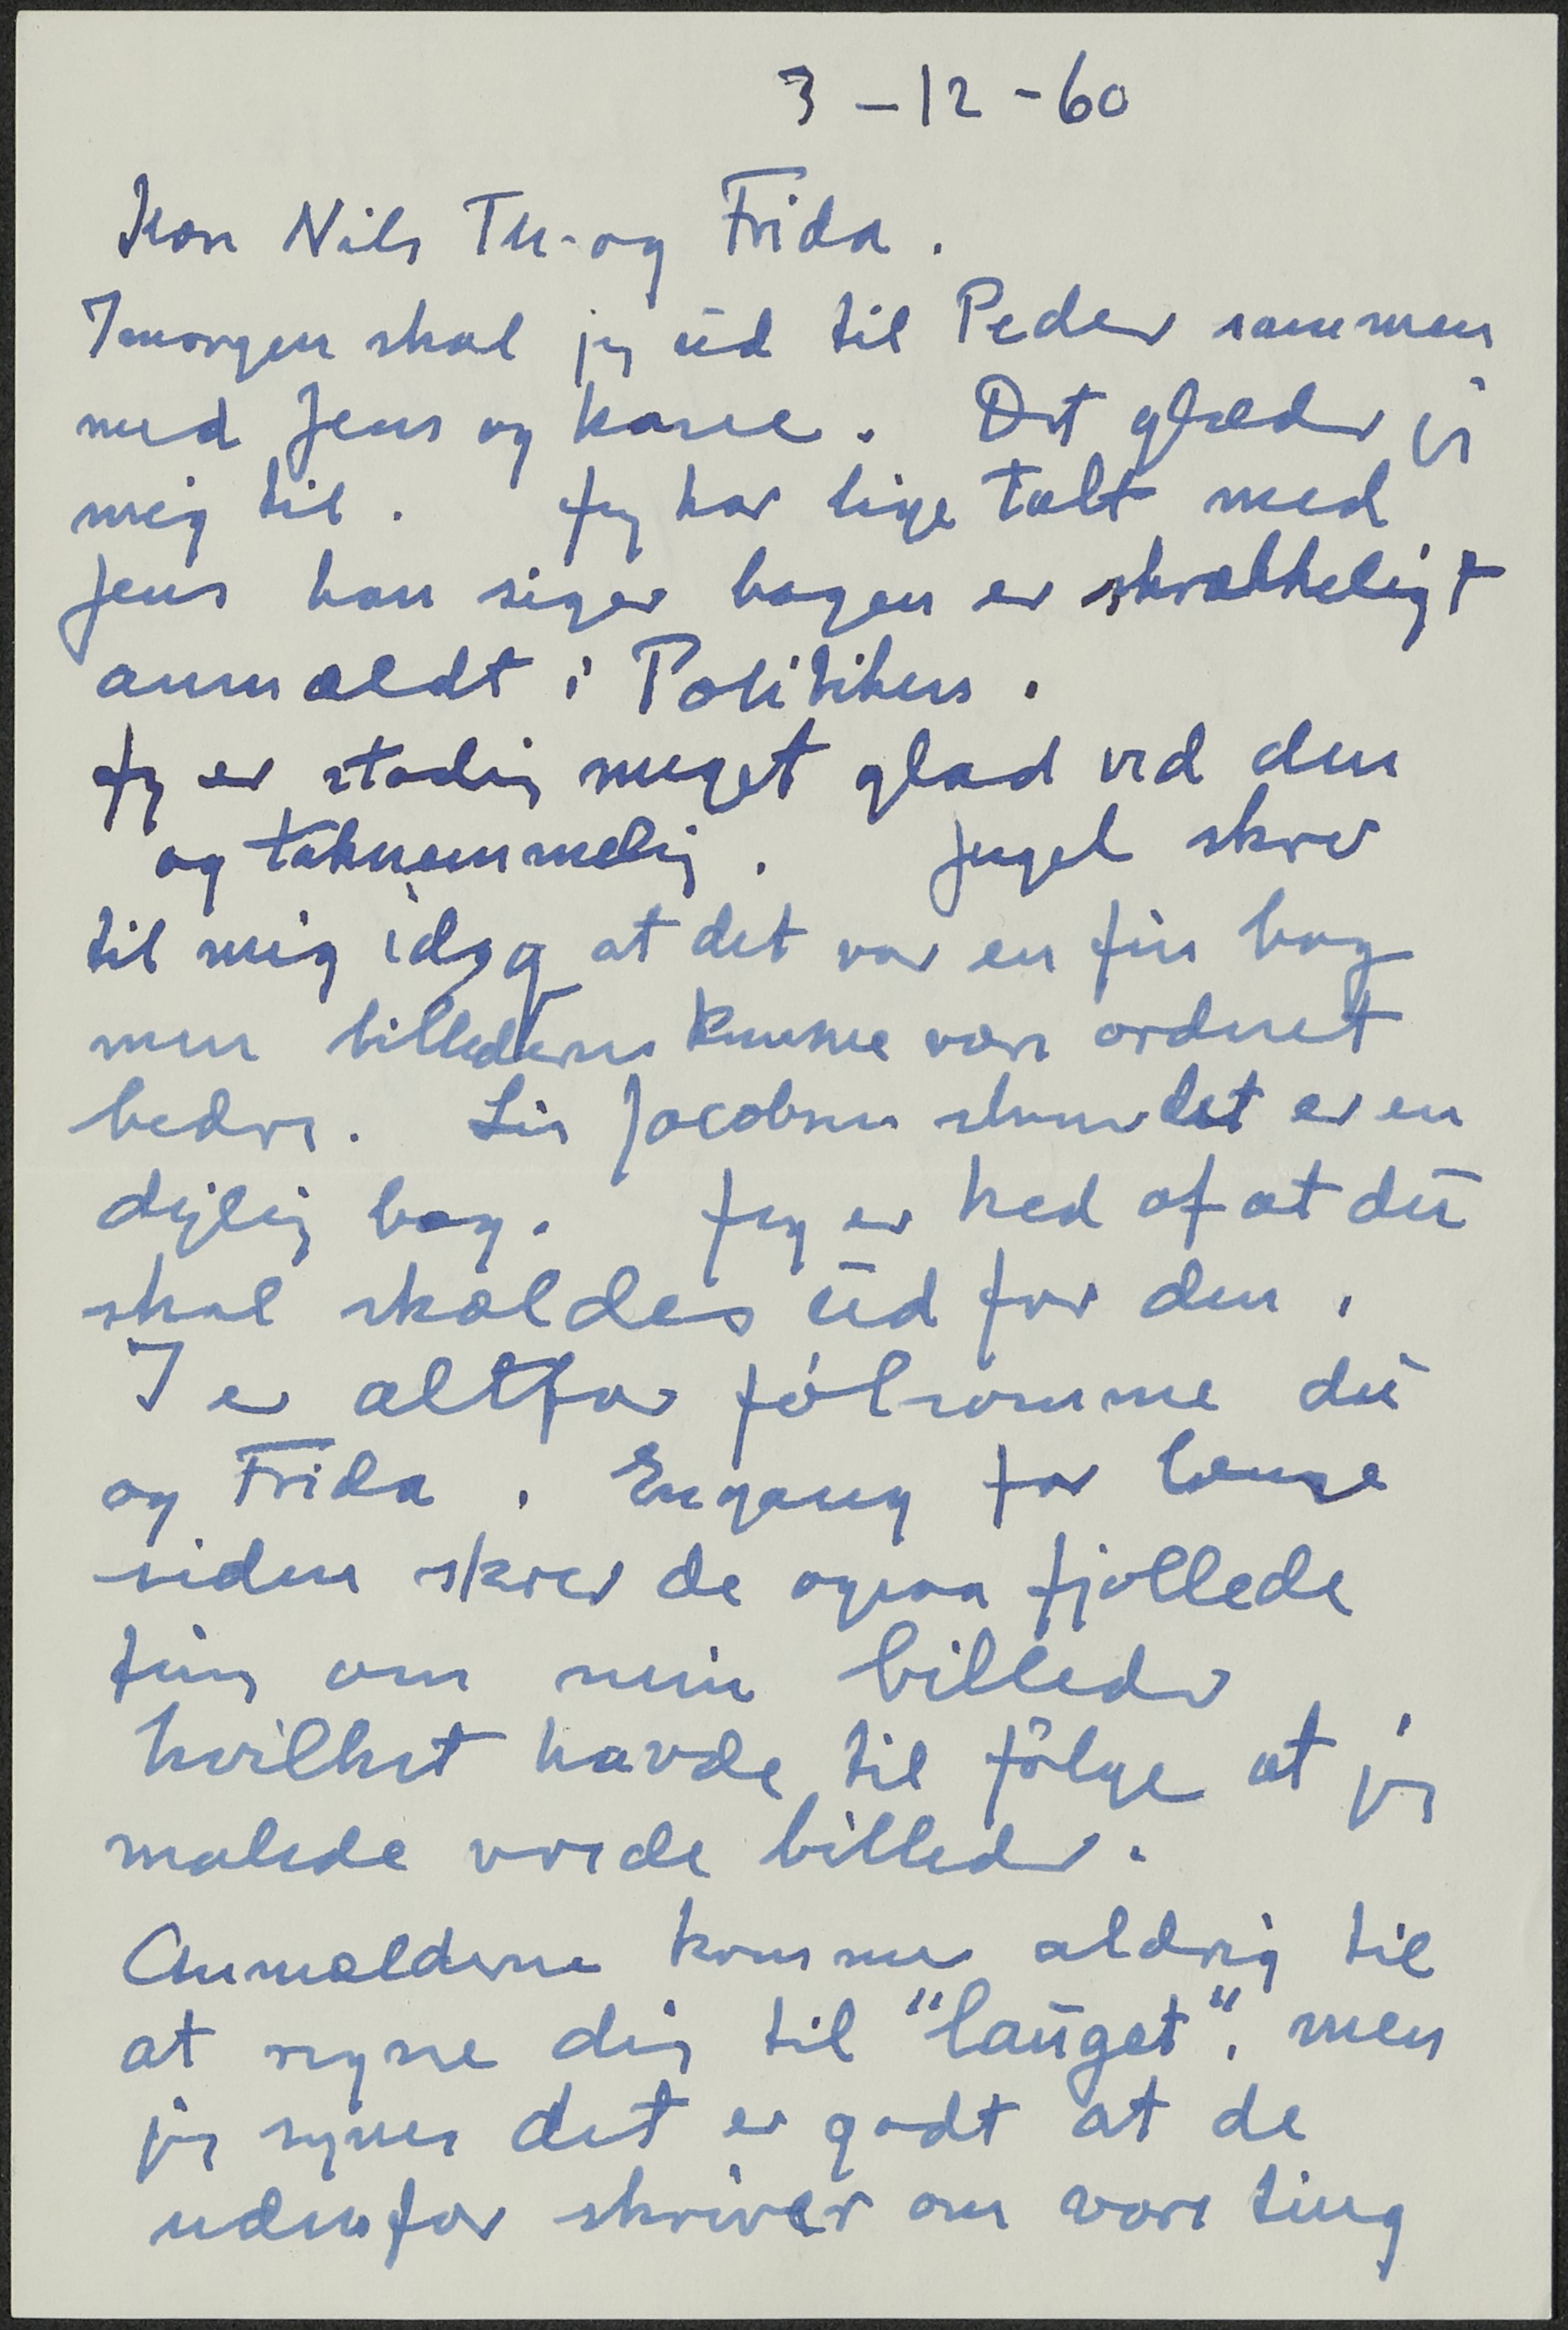 3-12-60
Kære Nils Th. og Frida.
Imorgen skal jeg ud til Peder sammen
med Jens og Karee. Det glæder jeg
mig til. Jeg har lige talt med
Jens han siger bogen er skrækkeligt
anmældt i Politiken.
Jeg er stadig meget glad ved den
og taknemmelig. Jugel skrev
til mig idag at det var en fin bog
men billederne kunne være ordnet
bedre. Lis Jacobsen skrev det er en
dejlig bog. Jeg er ked af at du
skal skældes ud for den.
I er altfor følsomme du
og Frida. Engang for længe
siden skrev de ogsaa fjollede
ting om mine billeder
hvilket havde til følge at jeg
malede vrede billeder.
Anmelderne kommer aldrig til
at regne dig til "lauget". men
jeg synes det er godt at de
udenfor skriver om vore ting